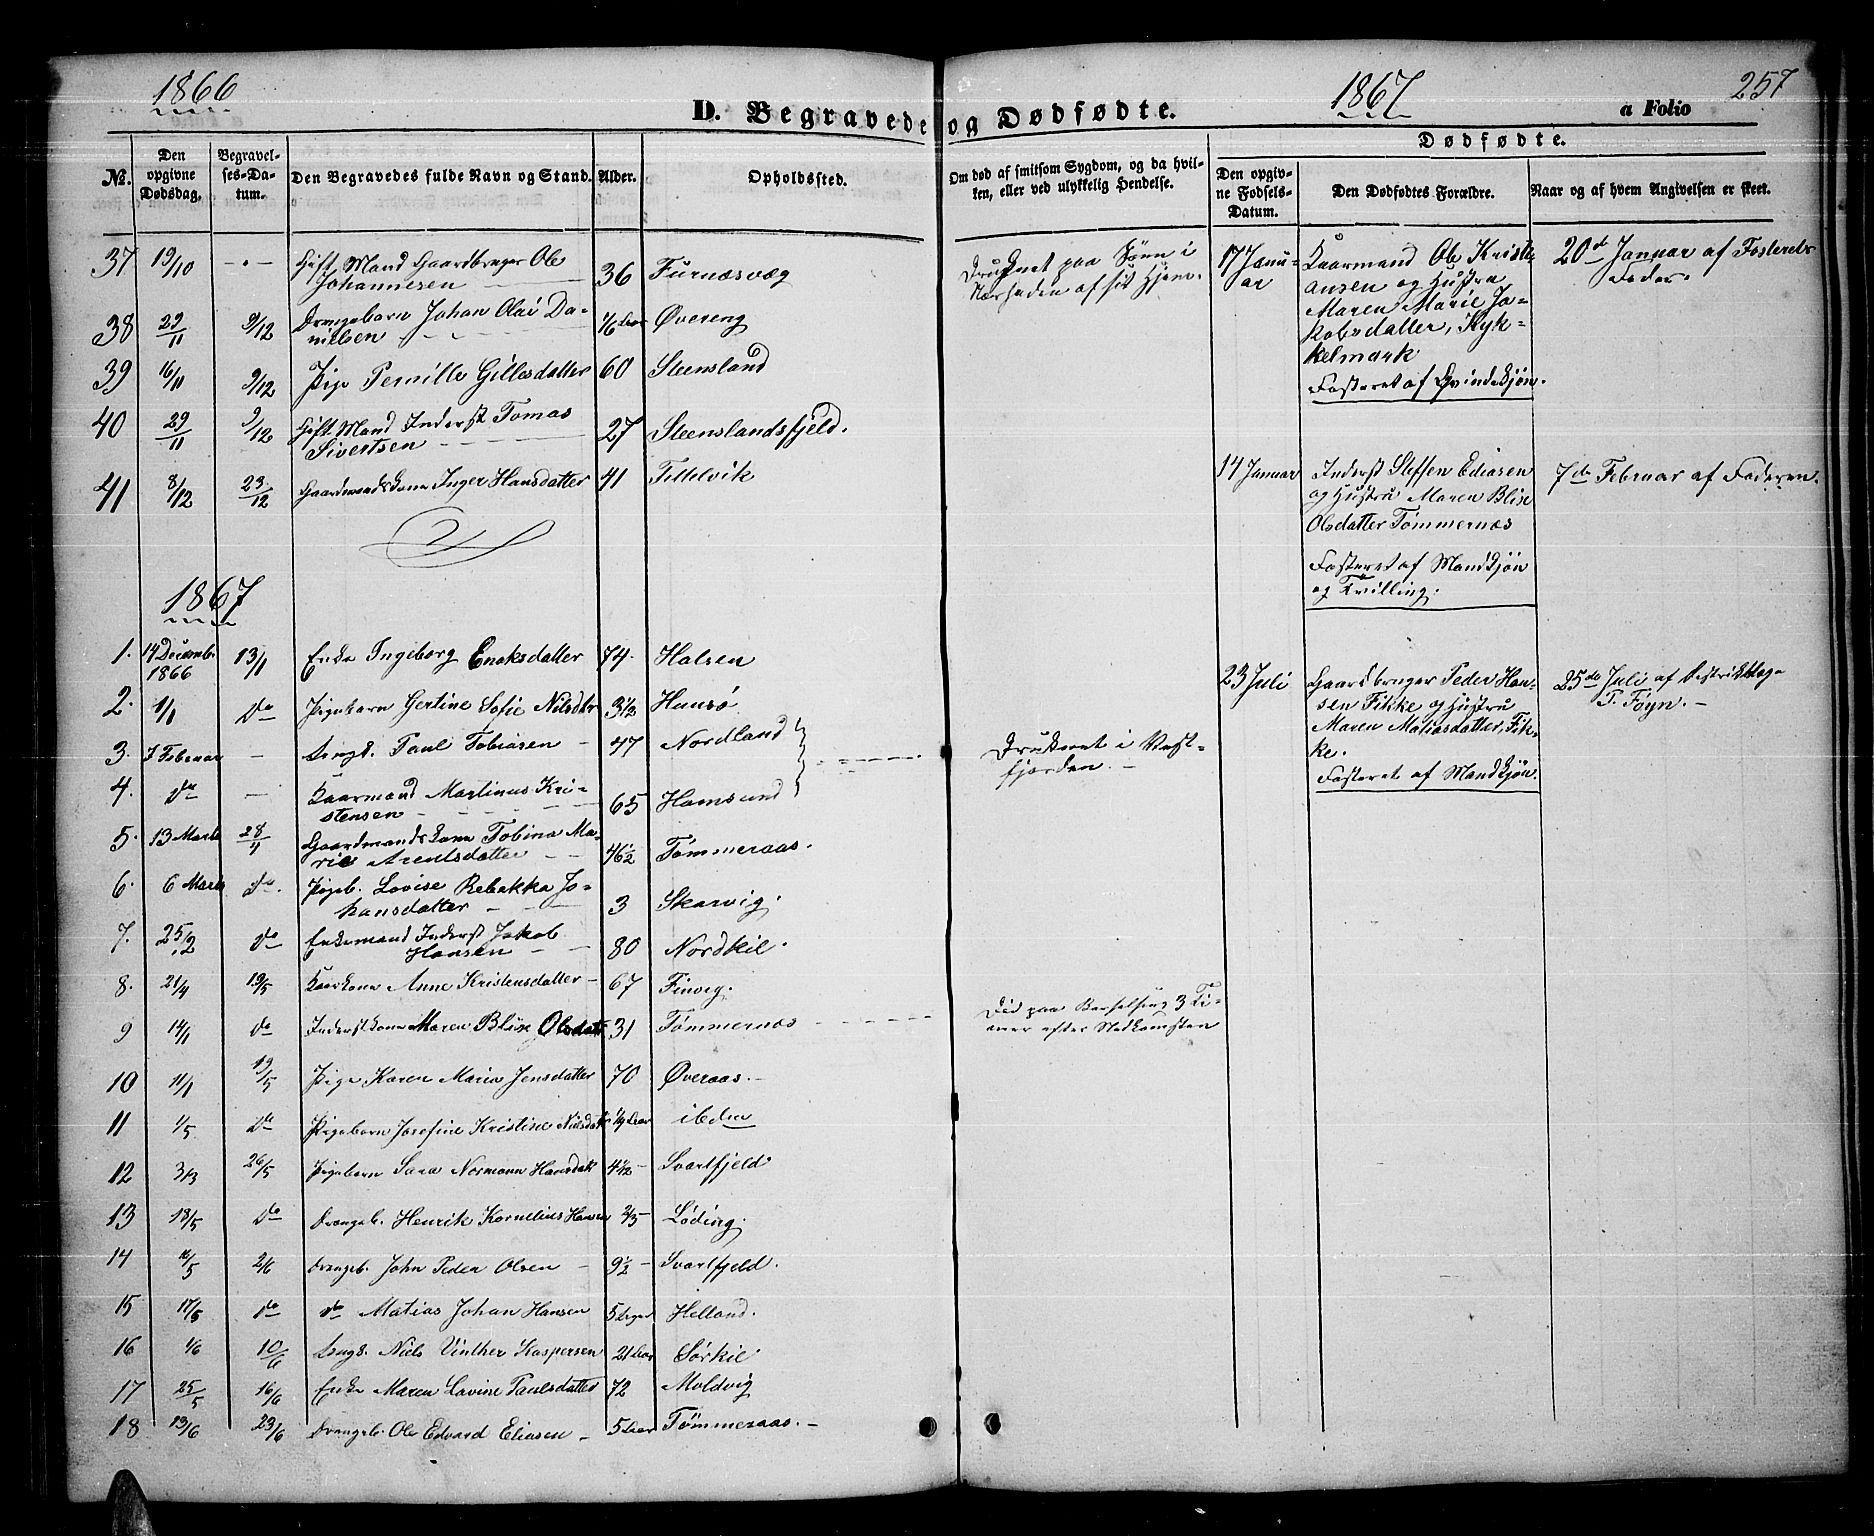 1866
1867
257
D. Begravede og Dødfødte.
a Folio
Dødfødte.
No.
Den opgivne Dødsdag.
Begravelses-Datum.
Den Begravedes fulde Navn og Stand.
Alder.
Opholdssted.
Om død af smitsom Sygdom, og da hvilken, eller ved ulykkelig Hendelse.
Den opgivne Fodsels-Datum.
Den Dødfødtes Forældre.
Naar og af hvem Angivelsen er skeet.
37 19/10 -.- Gift Mand Gaardbruger Ole Johannesen 36 Furnæsvæg
38 29/11 9/12 Drengebarn Johan Olai Danielsen 1/6 Aar Øvereng
39 16/11 9/12 Pige Pernille Gillesdatter 60 Steensland
40 29/11 9/12 Gift Mand Inderst Tomas Sivertsen 27 Steenslandsfjeld.
41 8/12 23/12 Gaardmandskone Inger Hansdatter 41 Tettelvik
1867
1. 14 Decemb. 1866 13/1 Enke Ingeborg Enoksdatter 74. Halsen
2. 1/1 do Pigebarn Gertine Sofie Nilsdtr 3 1/2 Hamsø
3. 7 Februar - Ungk. Paul Tobiasen - 47 Nordland
4. do - Kaarmand Martinus Kristensen 65 Hamsund
5. 13 Marts 28/4 Gaardmandskone Tobina Marie Arentsdatter 46 1/2 Tømmeraas.
6. 6 Marts do. Pigeb. Lovise Rebekka Johansdatter 3 Skarvig.
7. 25/2 do Enkemand Inderst Jakob Hansen 80 Nordkil.
8. 21/4 19/5 Kaarkone Anne Kristensdatter - 67 Finvig.
9 14/1 do Inderstkone Maren Blise Olsdatr 31 Tømmernæs
10 11/1 19/5 Pige Karen Maria Jensdatter 70 Øveraas.-
11 1/5 do Pigebarn Josefine Kristine Nilsdatr 1/9 Aar ibdm
12 3/3 26/5 Pigebarn Sara Normann Hansdatr 4 1/12 - Svartfjeld
13 18/5 do Drengeb. Henrik Kornelius Hansen 2/3 - Løding.
14 16/5 2/6 Drengeb. John Peder Olsen - 9 1/2 - Svartfjeld.
15 17/5 do do Matias Johan Hansen 5 Uger Helland.
16 1/6 10/6 Ungk. Niels Vinther Kaspersen 21 Aar Sørkil
17 25/5 16/6 Enke Maren Lovise Paulsdatter 72 Moldvig
18 13/6 23/6 Drengeb. Ole Edvard Eliasen - 5 Aar Tømmeraas.-
Druknet paa Søen i
Nærheden af sit Hjem.
Druknet i Vest-
fjorden. -
Død paa Barselseng 3 Ti-
mer efter Nedkomsten
17 Janu-
ar
Kaarmand Ole Kristi-
ansen og Hustru
Maren Marie Ja-
kobsdatter, Kyk-
kelmark
Fosteret af Qvindekjøn.
20de Januar af Fosterets
Fader.
14 Januar
Inderst Steffen Eliasen
og Hustru Maren Blise
Olsdatter Tømmernæs
Fosteret af Mandkjøn
og Tvilling.
7de Februar af Faderen.
23 Juli
Gaardbruger Peder Han-
sen Fikke og Hustru
Maren Matiasdatter, Fik-
ke.
Fosteret af Mandkjøn.
25de Juli af Distriktslæge
T. Føyn. -